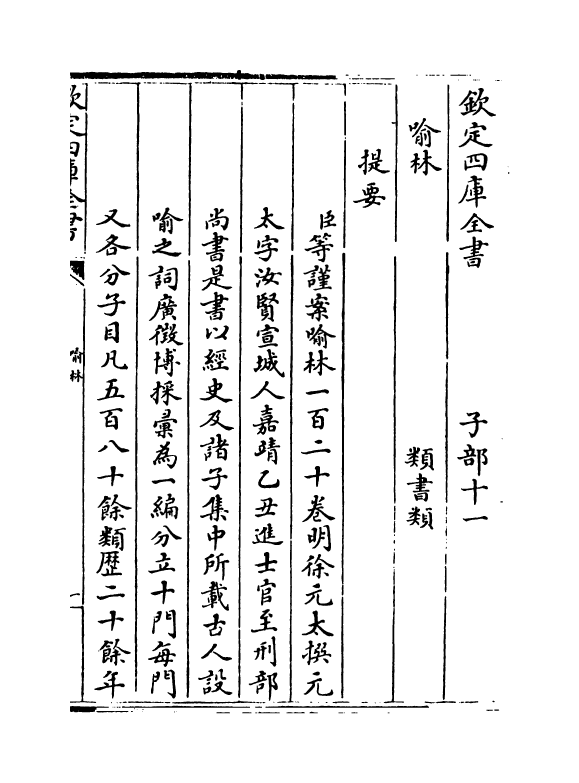 欽定四庫全書　子部十一
喻林　類書類
提要
臣等謹案喻林一百二十卷明徐元太撰元
太字汝賢宣城人嘉靖乙丑進士官至刑部
尚書是書以經史及諸子集中所載古人設
喻之詞廣徵博採彙為一編分立十門每門
又各分子目凡五百八十餘類歴二十餘年
欽定四庫全書
喻林
一